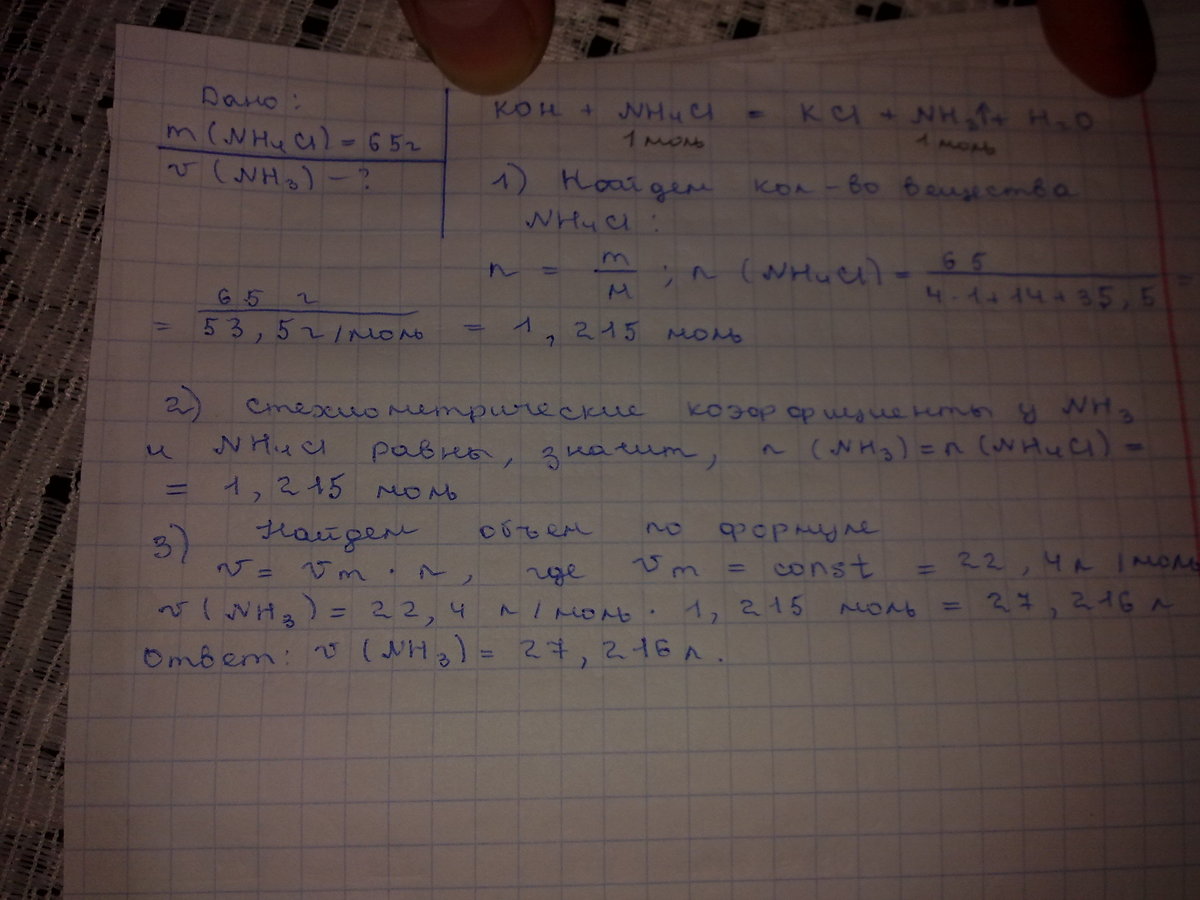 Дано:
m(NH₄Cl) = 65г
v (NH₃) - ?
KOH + NH₄Cl = KCl + NH₃↑ + H₂O
1 моль 1 моль
1) Найдем кол-во вещества
NH₄Cl:
n = m/M ; n (NH₄Cl) = 65/(4·1+14+35,5) =
= 65 г/53,5г/моль = 1,215 моль
2) стехиометрические коэффициенты у NH₃
и NH₄Cl равны, значит, n (NH₃) = n (NH₄Cl) =
= 1,215 моль
3) Найдем объем по формуле
v = vm · n, где vm = const = 22,4л/моль
v (NH₃) = 22,4 л/моль · 1,215 моль = 27,216 л
Ответ: v (NH₃) = 27,216 л.